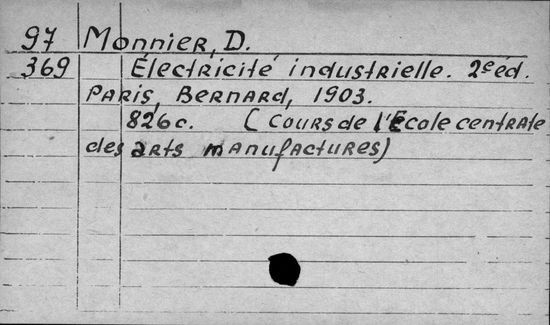 97 Monnier, D.
369 Électricité industrielle. 2e éd.
Paris, Bernard, 1903.
826c. (Cours de l'École centrale
des arts manufactures)